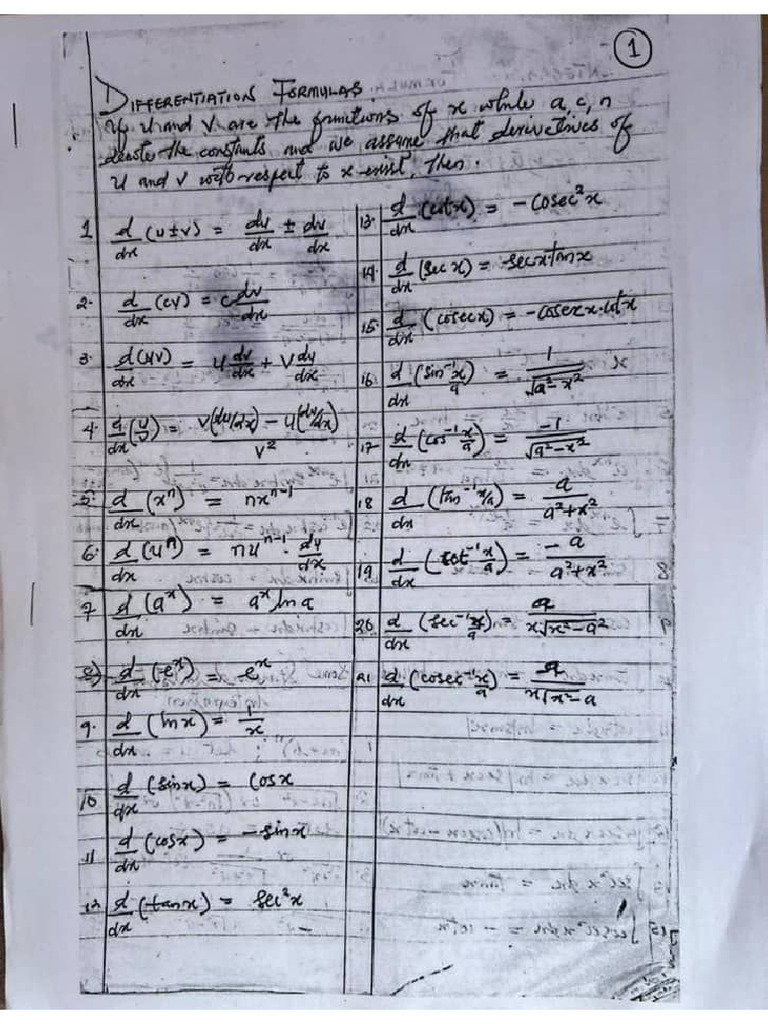 1
DIFFERENTIATION FORMULAS.
If u and v are the functions of x while a, c, n
denote the constants and we assume that derivatives of
u and v with respect to x exist, then.
1 d/dx (u ± v) = du/dx ± dv/dx
2. d/dx (cv) = c dv/dx
3. d(uv)/dx = u dv/dx + v du/dx
4. d/dx (u/v) = v(du/dx) - u(dv/dx) / v²
5. d/dx (xⁿ) = nxⁿ⁻¹
6. d/dx (uⁿ) = nuⁿ⁻¹ · du/dx
7 d/dx (aˣ) = aˣ ln a
8) d/dx (eˣ) = eˣ
9. d/dx (ln x) = 1/x
10 d/dx (sinx) = cosx
11 d/dx (cosx) = -sinx
12 d/dx (tanx) = sec²x
13. d/dx (cotx) = -cosec²x
14 d/dx (sec x) = secxtanx
15. d/dx (cosecx) = -cosecx·cotx
16. d/dx (sin⁻¹ x/a) = 1/√a²-x²
17 d/dx (cos⁻¹ x/a) = -1/√a²-x²
18 d/dx (tan⁻¹ x/a) = a/a²+x²
19 d/dx (cot⁻¹ x/a) = -a/a²+x²
20 d/dx (sec⁻¹ x/a) = a/x√x²-a²
21 d/dx (cosec⁻¹ x/a) = a/x√x²-a